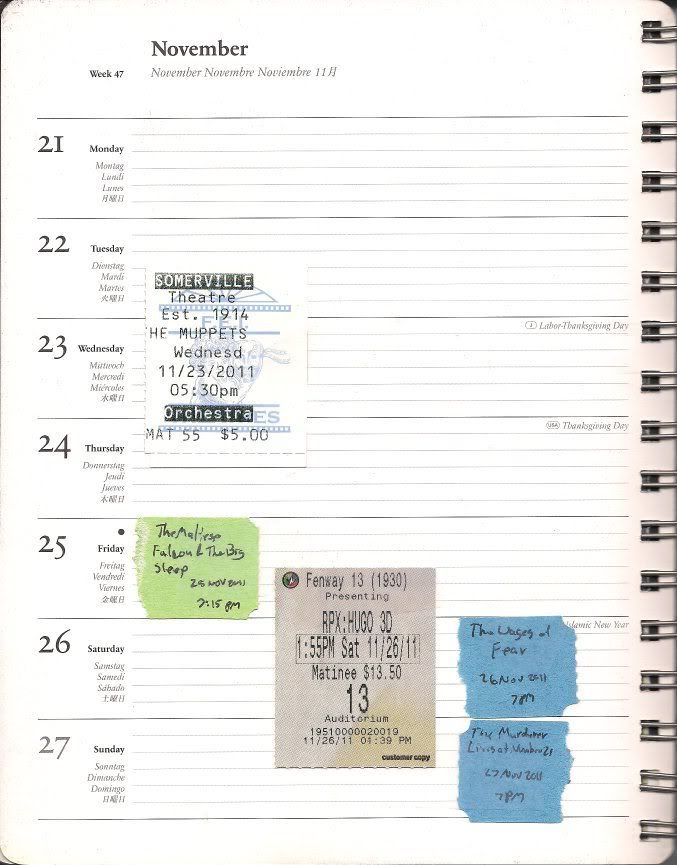 November
Week 47
November Novembre Noviembre 11月
21
Monday
Montag
Lundi
Lunes
月曜日
22
Tuesday
Dienstag
Mardi
Martes
火曜日
SOMERVILLE
Theatre
Est. 1914
HE MUPPETS
Wednesd
11/23/2011
05:30pm
Orchestra
MAT 55 $5.00
23
Wednesday
Mittwoch
Mercredi
Miércoles
水曜日
Labor-Thanksgiving Day
24
Thursday
Donnerstag
Jeudi
Jueves
木曜日
USA Thanksgiving Day
25
Friday
Freitag
Vendredi
Viernes
金曜日
The Maltese
Falcon & The Big
Sleep
25 NOV 2011
7:15 PM
Fenway 13 (1930)
Presenting
RPX:HUGO 3D
1:55PM Sat 11/26/11
Matinee $13.50
13
Auditorium
19510000020019
11/26/11 04:39 PM
customer copy
26
Saturday
Samstag
Samedi
Sábado
土曜日
Islamic New Year
The Wages of
Fear
26 Nov 2011
7PM
27
Sunday
Sonntag
Dimanche
Domingo
日曜日
The Murderer
Lives at Number 21
27 NOV 2011
7PM